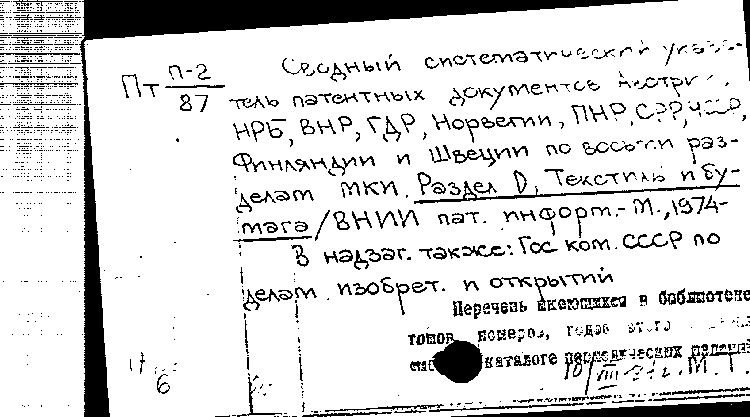 Пт п-2/87
Сводный систематический указа-
тель патентных документов Австри
НРБ, ВНР, ГДР, Норвегии, ПНР, СРР, ЧССР,
Финляндии и Швеции по восьми раз-
делам МКИ. Раздел D, Текстиль и бу-
мага / ВНИИ пат. информ. - М., 1974-
В надзаг. также: Гос ком. СССР по
делам изобрет. и открытий
Перечень имеющихся в библиотеке
томов, номеров, годов этого
каталоге периодических изданий
6
М. Т.